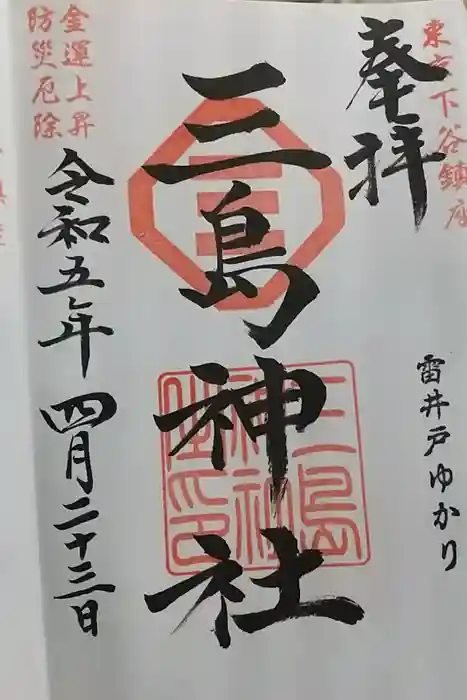 東京下谷鎮府
奉拝
雷井戸ゆかり
三島神社
三島神社之印
金運上昇
防災厄除
令和五年四月二十三日